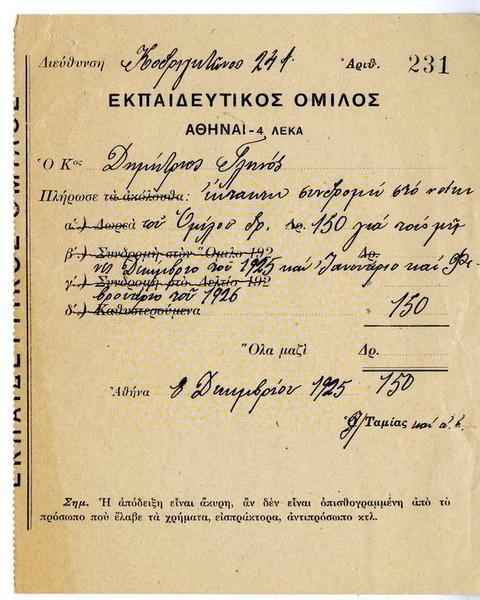 Διεύθυνση 241 Ἀριθ. 231
ΕΚΠΑΙΔΕΥΤΙΚΟΣ ΟΜΙΛΟΣ
ΑΘΗΝΑΙ - 4 ΛΕΚΑ
Ὁ Κος Δημήτριος Γληνός
Πλήρωσε τὰ ἀκόλουθα: ἔκτακτη συνδρομή στό
α΄.) Δωρεὰ τοῦ Ὁμίλου δρ. Δρ. 150 γιά τούς μῆ
β΄.) Συνδρομὴ στὸν Ὅμιλο 192 Δρ.
νες Δεκεμβριο του 1925 και Ἰανουάριο και Φε
γ΄.) Συνδρομὴ στὸ Δελτίο 192
βρουάριο του 1926
δ΄.) Καθυστερούμενα 150
Ὅλα μαζὶ Δρ.
Ἀθήνα 8 Δεκεμβρίου 1925 150
Ὁ Ταμίας
Σημ. Ἡ ἀπόδειξη εἶναι ἄκυρη, ἂν δὲν εἶναι ὀπισθογραμμένη ἀπὸ τὸ
πρόσωπο ποὺ ἔλαβε τὰ χρήματα, εἰσπράκτορα, ἀντιπρόσωπο κτλ.
ΕΚΠΑΙΔΕΥΤΙΚΟΣ ΟΜΙΛΟΣ